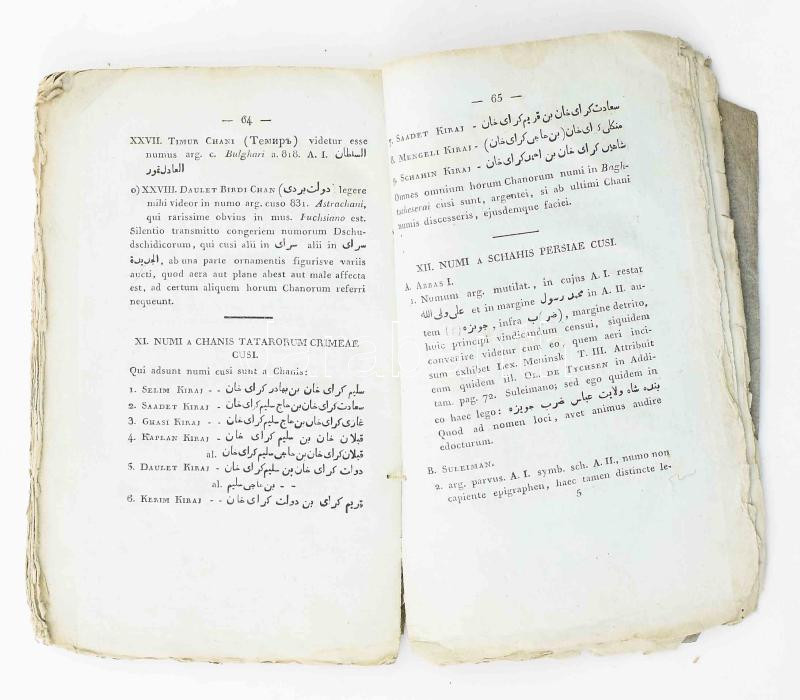 — 64 —
XXVII. TIMUR CHANI (Темиръ) videtur esse
numus arg. c. Bulghari a. 818. A. I. السلطان
العادل تمور
o) XXVIII. DAULET BIRDI CHAN (دولت بردی) legere
mihi videor in numo arg. cuso 831. Astrachani,
qui rarissime obvius in mus. Fuchsiano est.
Silentio transmitto congeriem numorum Dschu-
dschidicorum, qui cusi alii in سرای alii in سرای
الجديدة, ab una parte ornamentis figurisve variis
aucti, quod aera aut plane abest aut male affecta
est, ad certum aliquem horum Chanorum referri
nequeunt.
XI. NUMI A CHANIS TATARORUM CRIMEAE
CUSI.
Qui adsunt numi cusi sunt a Chanis:
1. SELIM KIRAJ - - سليم كرای خان بن بهادر كرای خان
2. SAADET KIRAJ - سعادت كرای خان بن حاج سليم كرای خان
3. GHASI KIRAJ - - غازی كرای خان بن حاج سليم كرای خان
4. KAPLAN KIRAJ - قپلان خان بن سليم كرای خان
al. قپلان كرای خان بن حاجی سليم كرای خان
5. DAULET KIRAJ - دولت كرای خان بن سليم كرای خان
al. - - بن حاجی سليم
6. KERIM KIRAJ - - قريم كرای بن دولت كرای خان
— 65 —
7. SAADET KIRAJ - سعادت كرای خان بن قريم كرای خان
8. MENGELI KIRAJ - منكلی كرای خان (بن حاجی كرای خان)
9. SCHAHIN KIRAJ - شاهين كرای خان بن احمد كرای خان
Omnes omnium horum Chanorum numi in Bagh-
tscheserai cusi sunt, argentei, si ab ultimi Chani
numis discesseris, ejusdemque faciei.
XII. NUMI A SCHAHIS PERSIAE CUSI.
A. ABBAS I.
1. Numum arg. mutilat., in cujus A. I. restat
علی ولی الله et in margine محمد رسول in A. II. au-
tem جويزه, infra (ضرب), margine detrito,
huic principi vindicandum censui, siquidem
convenire videtur cum eo, quem aeri inci-
sum exhibet Lex. Meninsk. T. III. Attribuit
eum quidem ill. OL. DE TYCHSEN in Addi-
tam. pag. 72. Suleimano; sed ego quidem in
eo haec lego: بنده شاه ولايت عباس ضرب جويزه
Quod ad nomen loci, avet animus audire
edocturum.
B. SULEIMAN.
2. arg. parvus. A. I. symb. sch. A. II., numo non
capiente epigraphen, haec tamen distincte le-
5